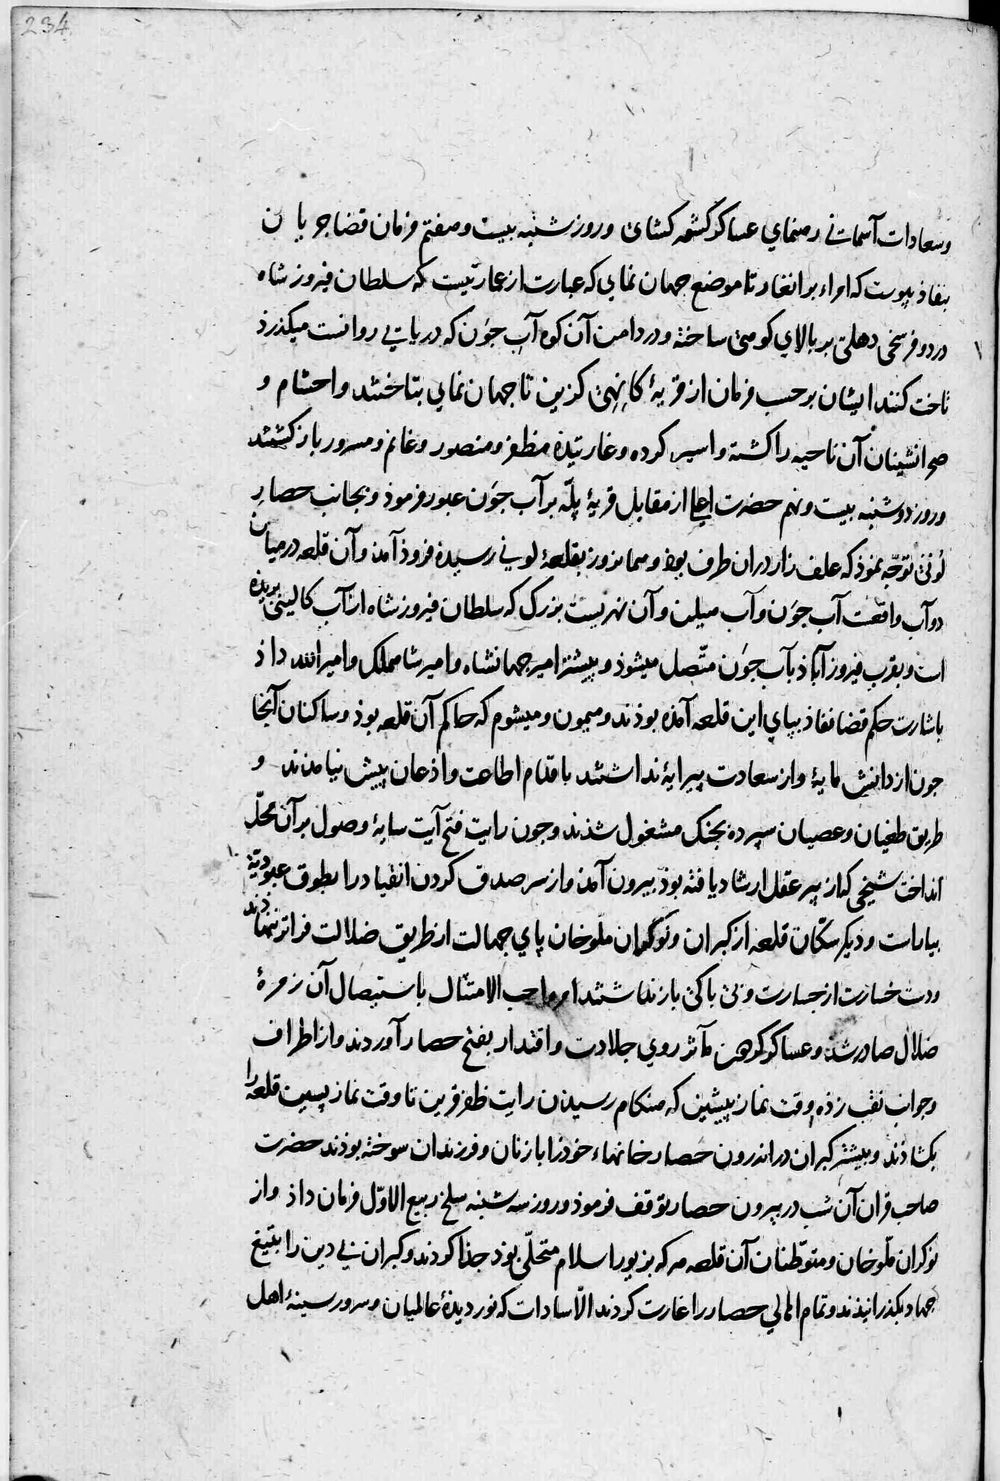 234
و سعادات آسمانی رهنمای عساکر کشور کشای و روز شنبه بیست و هفتم فرمان قضا جریان
بنفاذ پیوست که امراء برانغار تا موضع جهان نمای که عبارت از عمارتیست که سلطان فیروز شاه
در دو فرسخی دهلی بر بالای کوهی ساخته و در دامن آن کوه آب جون که دریایی روانست میگذرد
تاخت کنند ایشان بر حسب فرمان از قریهٔ کانهی کزین تا جهان نمای بتاختند و احشام و
صحرانشینان آن ناحیه را کشته و اسیر کرده و غارتیده مظفر و منصور و غانم و مسرور باز کشتند
و روز دوشنبه بیست و نهم حضرت اعلی از مقابل قریهٔ پله بر آب جون عبور فرموذ و بجانب حصار
لونی توجّه نموذ که علف زار دران طرف بوذ و همانروز بقلعهٔ لونی رسیده فروذ آمد و آن قلعه در میان
دو آب واقعست آب جون و آب هیلن و آن نهریست بزرک که سلطان فیروز شاه از آب کالینی بریده
است و بقرب فیروز آباذ بآب جون متّصل میشوذ و پیشتر امیر جهانشاه و امیر شاهملک و امیر الله داذ
باشارت حکم قضا نفاذ بپای این قلعه آمده بوذند و میمون و میشوم که حاکم آن قلعه بوذ و ساکنان آنجا
چون از دانش مایهٔ و از سعادت پیرایهٔ نداشتند باقدام اطاعت و اذعان پیش نیامدند و
طریق طغیان و عصیان سپرده بجنک مشغول شدند و چون رایت فتح آیت سایهٔ وصول بر آن محلّ
انداخت شیخی که از پیر عقل ارشاد یافته بوذ بیرون آمد و از سر صدق کردن انقیاد را بطوق عبودیّة
بیاراست و دیکر سکّان قلعه از کبران و نوکران ملّو خان پای جهالت از طریق ضلالت فراتر ننهاذند
و دست خسارت از جسارت و بی باکی باز نداشتند امر واجب الامتثال باستیصال آن زمرهٔ
ضلال صادر شد و عساکر کوه‌کن مآثر روی جلادت و اقتدار بفتح حصار آوردند و از اطراف
و جوانب نقب زده وقت نماز پیشین که هنکام رسیدن رایت ظفر قرین تا وقت نماز پسین قلعه را
بکشاذند و بیشتر کبران در اندرون حصار خانهاء خوذ را با زنان و فرزندان سوخته بوذند حضرت
صاحب قران آن شب در بیرون حصار توقف فرموذ و روز سه شنبه سلخ ربیع الاوّل فرمان داذ و از
نوکران ملّو خان و متوطّنان آن قلعه هر که بزیور اسلام متحلّی بوذ جذا کردند و کبران بی دین را بتیغ
جهاد بکذرانیذند و تمام اهالی حصار را غارت کردند الّا سادات که نور دیدهٔ عالمیان و سرور سینهٔ اهل